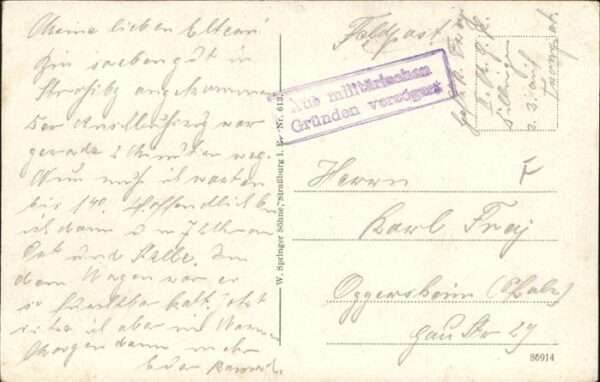 Meine lieben Eltern!
Bin soeben gut in
Straßbg angekommen
Der Anschlußzug war
gerade 2 Minuten weg.
Nun muß ich warten
bis 140. Hoffentlich
ich dann
Ort und Stelle. Im
dem Wagen war er
so furchtbar kalt. Jetzt
ich aber im Warmen
Morgen dann mehr
Euer
W. Springer Söhne, Straßburg i. E. Nr. 613.
Feldpost
Aus militärischen
Gründen verzögert
Herrn
Karl Frej
Oggersheim (Pfalz)
Gaustr 29
86914